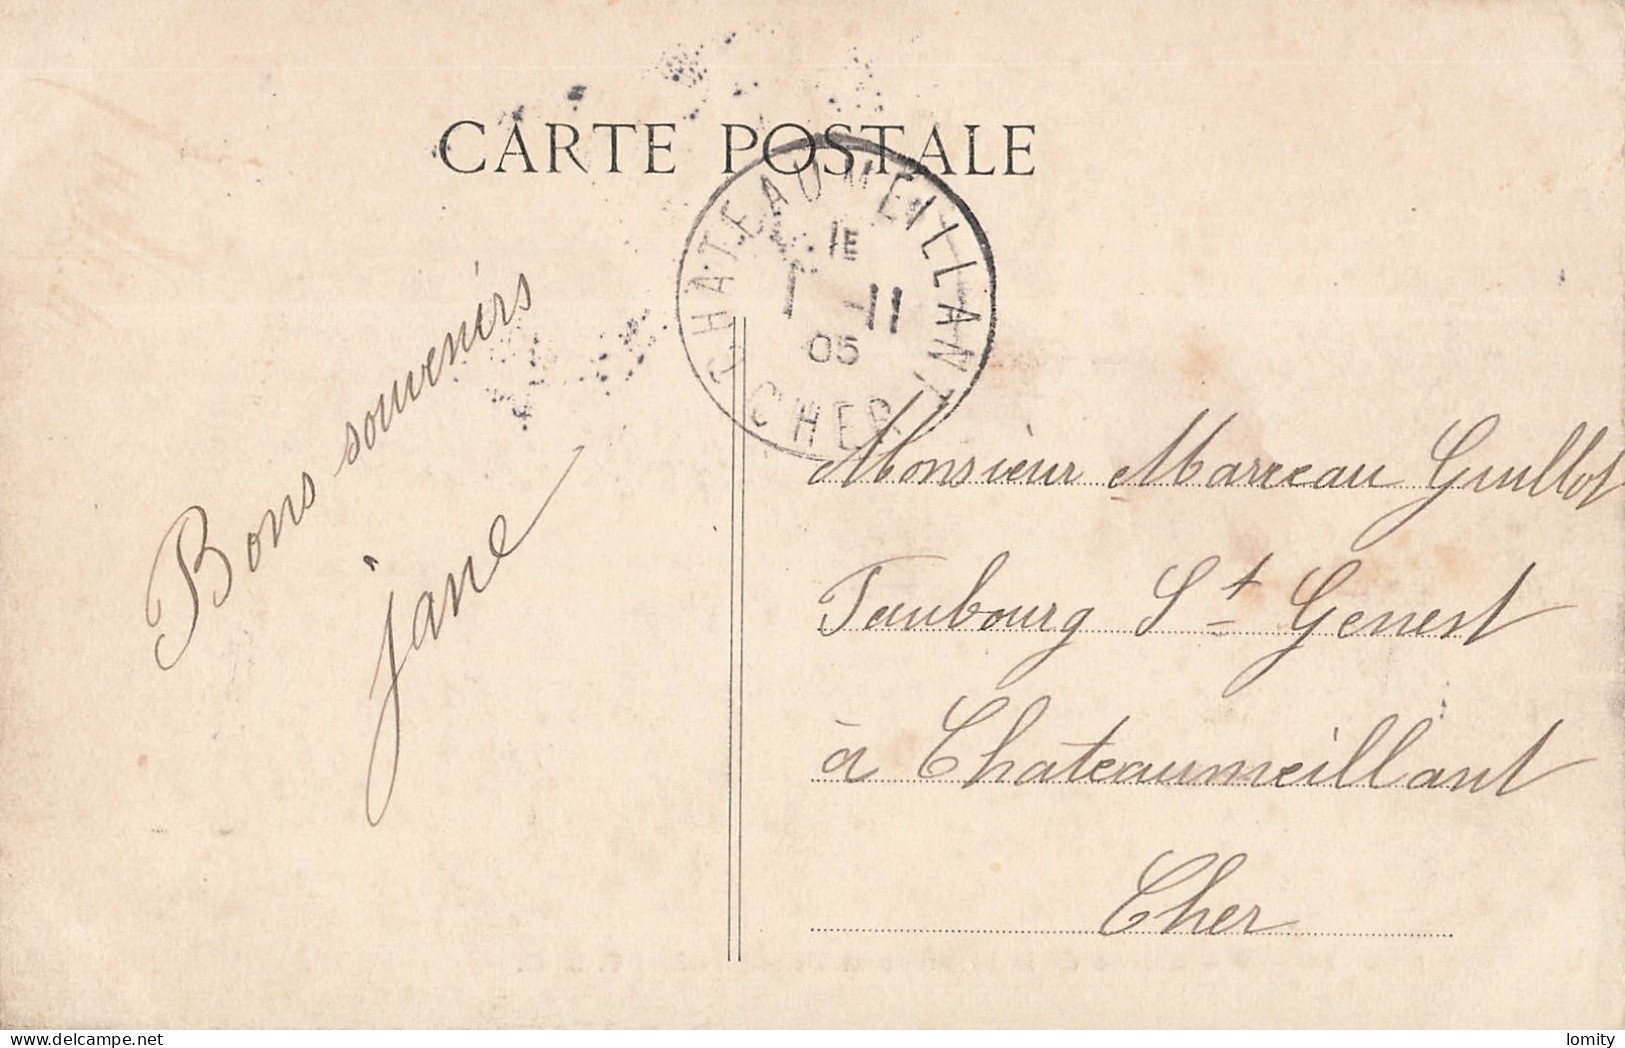 CARTE POSTALE
CHATEAUMEILLANT
1E
1 -11
05
CHER
Bons souvenirs
jane
Monsieur Marreau Guillot
Faubourg St Genest
à Chateaumeillant
Cher
lomity